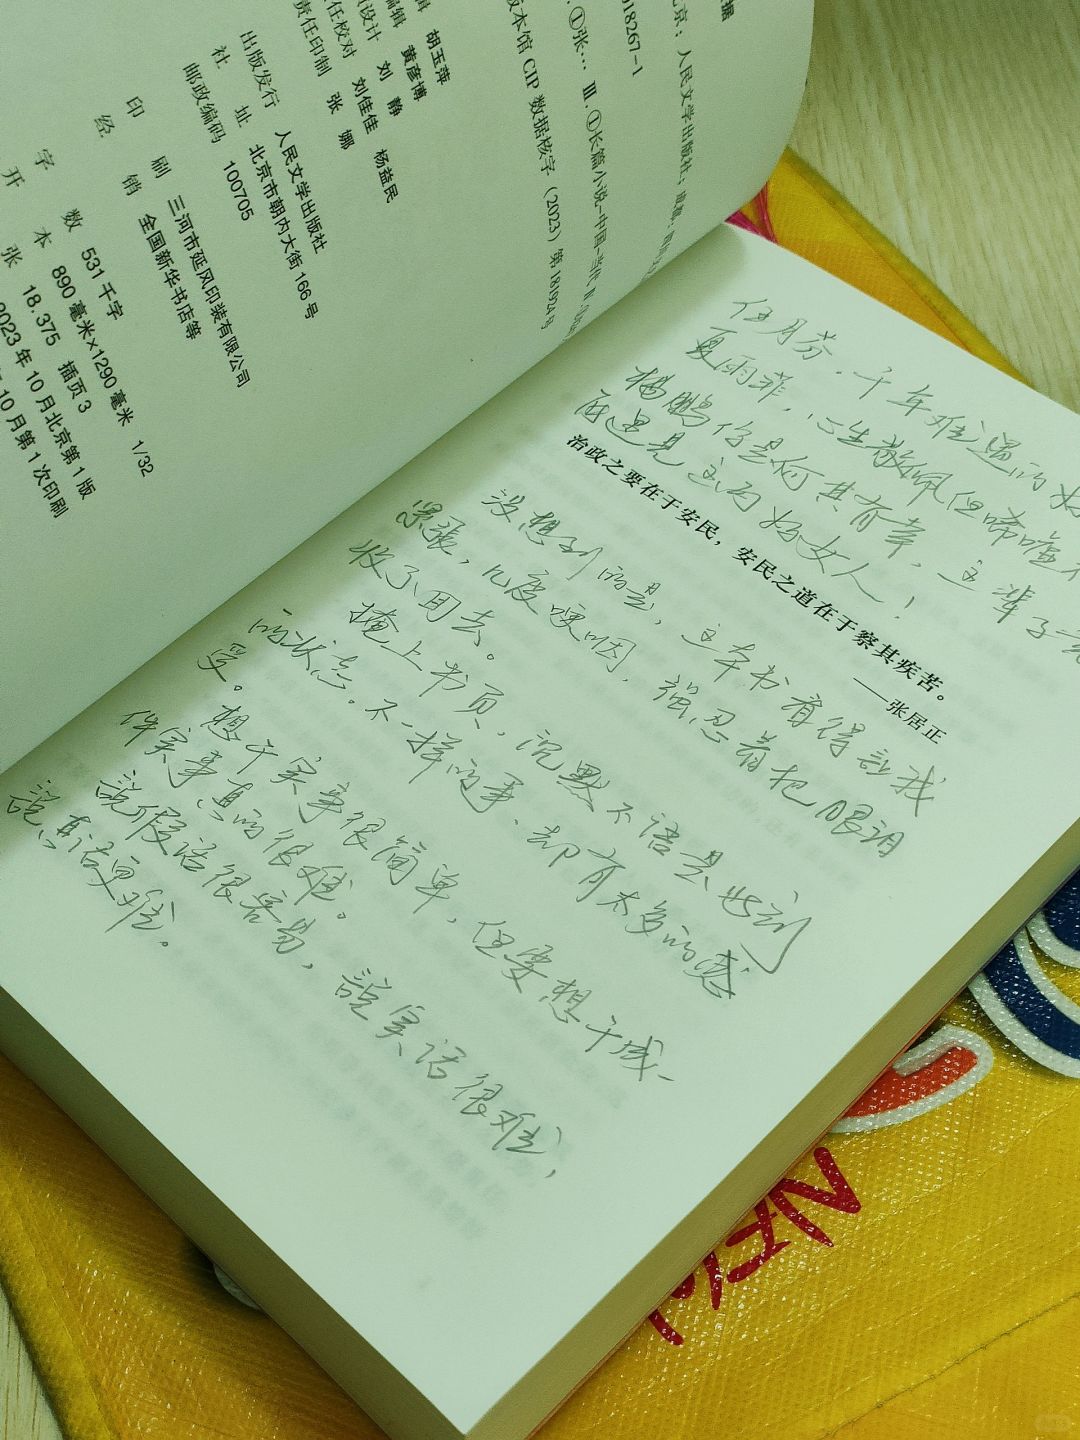 据
北京：人民文学出版社；
18267-1
.①张… Ⅲ.①长篇小说-中国-当代 Ⅳ.
版本馆 CIP 数据核字（2023）第 181924 号
辑 胡玉萍
编辑 黄彦博
设计 刘 静
任校对 刘佳佳 杨益民
责任印制 张 娜
出版发行 人民文学出版社
社 址 北京市朝内大街 166 号
邮政编码 100705
印 刷 三河市延风印装有限公司
经 销 全国新华书店等
字 数 531 千字
开 本 890 毫米×1290 毫米 1/32
张 18.375 插页 3
2023 年 10 月北京第 1 版
年 10 月第 1 次印刷
任月芬，千年难遇的好
夏雨菲，心生敬佩但嘴
杨鹏你是何其有幸，这辈子
遇见这两好女人！
治政之要在于安民，安民之道在于察其疾苦。
——张居正
没想到的是，这本书看得我
紧张，几度哽咽，强忍着把眼泪
收了回去。
掩上书页，沉默不语是此刻
的状态。不一样的事，却有太多的感
受。
想干实事很简单，但要想干成一
件实事真的很难。
說假话很容易，說实话很难，
說真话更难。